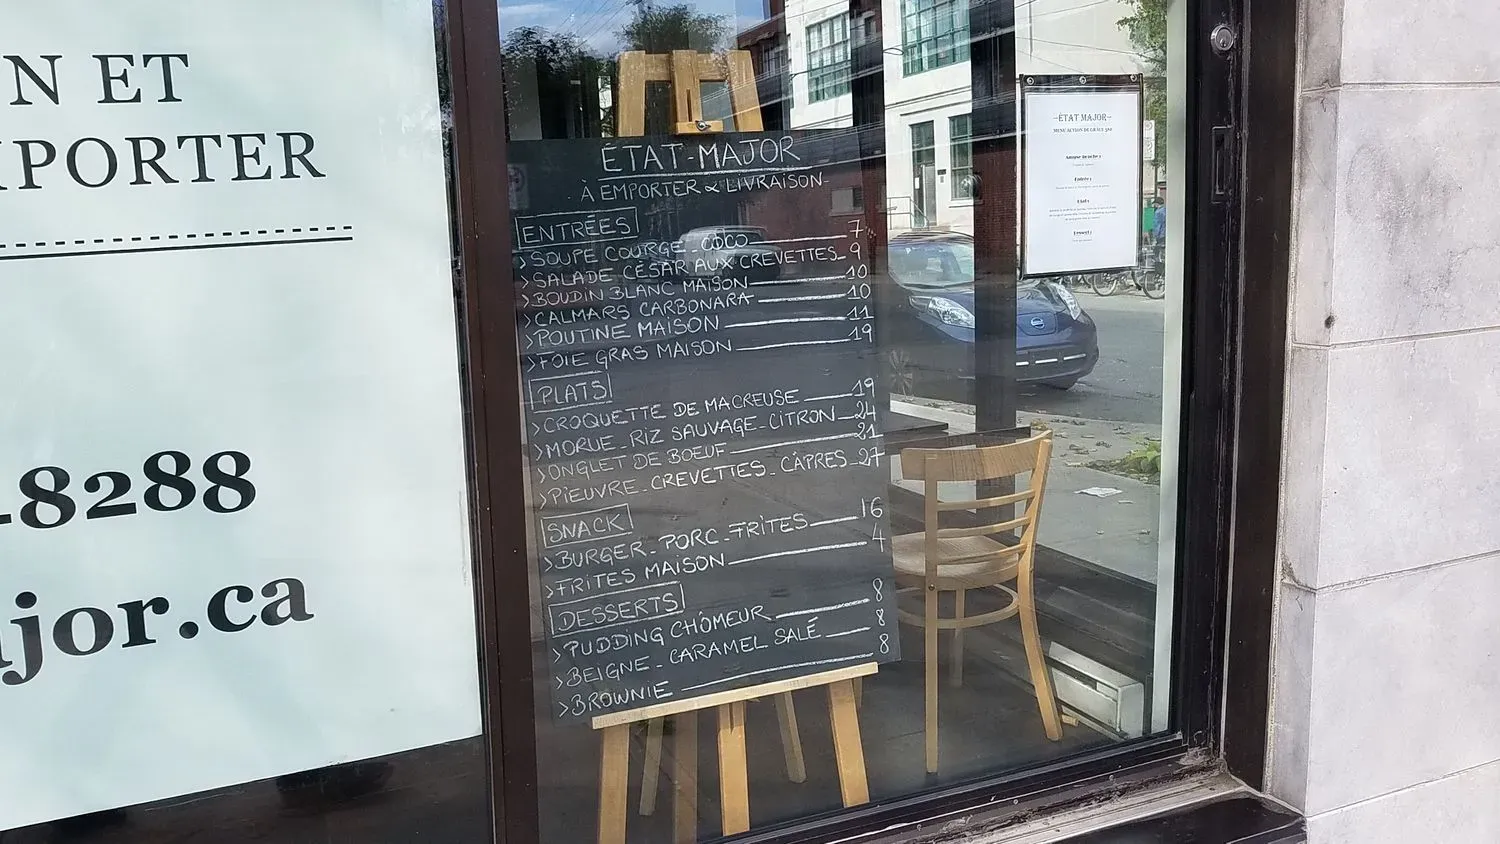 N ET
PORTER
-8288
jor.ca
ÉTAT-MAJOR
À EMPORTER & LIVRAISON-
ENTRÉES
>SOUPE COURGE-COCO 7
>SALADE CÉSAR AUX CREVETTES 9
>BOUDIN BLANC MAISON 10
>CALMARS CARBONARA 10
>POUTINE MAISON 11
>FOIE GRAS MAISON 19
PLATS
>CROQUETTE DE MACREUSE 19
>MORUE-RIZ SAUVAGE-CITRON 24
>ONGLET DE BOEUF 21
>PIEUVRE-CREVETTES-CÂPRES 27
SNACK
>BURGER-PORC-FRITES 16
>FRITES MAISON 4
DESSERTS
>PUDDING CHÔMEUR 8
>BEIGNE-CARAMEL SALÉ 8
>BROWNIE 8
-ÉTAT MAJOR-
MENU ACTION DE GRÂCE
Entrées
Plats
Desserts